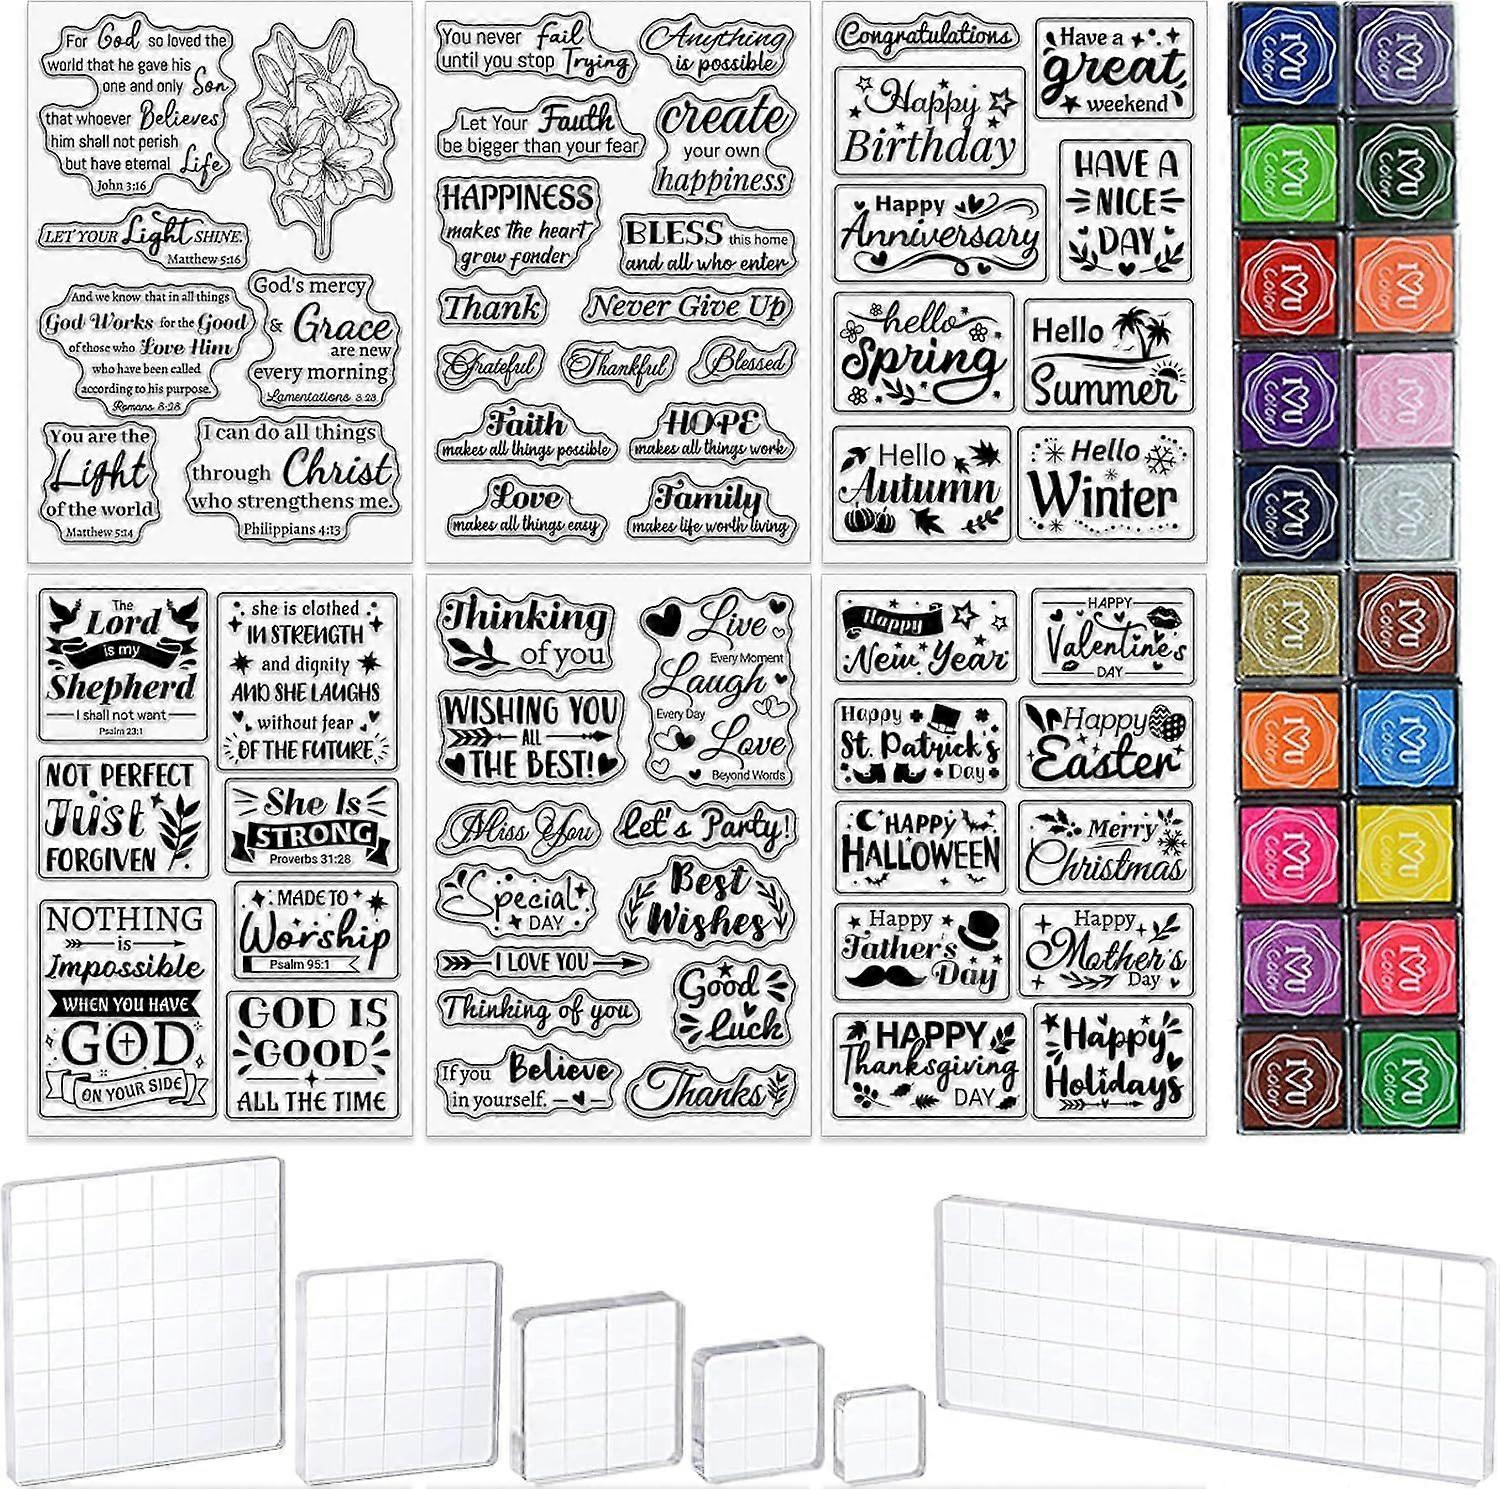 For God so loved the
world that he gave his
one and only Son
that whoever Believes
him shall not perish
but have eternal Life
John 3:16
LET YOUR Light SHINE.
Matthew 5:16
And we know that in all things
God Works for the Good
of those who Love Him
who have been called
according to his purpose.
Romans 8:28
God's mercy
& Grace
are new
every morning
Lamentations 3:23
You are the
Light
of the world
Matthew 5:14
I can do all things
through Christ
who strengthens me.
Philippians 4:13
You never fail
until you stop Trying
Anything
is possible
Let Your Faith
be bigger than your fear
create
your own
happiness
HAPPINESS
makes the heart
grow fonder
BLESS this home
and all who enter
Thank
Never Give Up
Grateful
Thankful
Blessed
Faith
makes all things possible
HOPE
makes all things work
Love
makes all things easy
Family
makes life worth living
Congratulations
Have a
great
weekend
Happy
Birthday
HAVE A
NICE
DAY
Happy
Anniversary
hello
Spring
Hello
Summer
Hello
Autumn
Hello
Winter
The
Lord
is my
Shepherd
I shall not want
Psalm 23:1
she is clothed
IN STRENGTH
and dignity
AND SHE LAUGHS
without fear
OF THE FUTURE
NOT PERFECT
Just
FORGIVEN
She Is
STRONG
Proverbs 31:28
MADE TO
Worship
Psalm 95:1
NOTHING
is
Impossible
WHEN YOU HAVE
GOD
ON YOUR SIDE
GOD IS
GOOD
ALL THE TIME
Thinking
of you
Live
Every Moment
Laugh
Every Day
Love
Beyond Words
WISHING YOU
ALL
THE BEST!
Miss You
let's Party!
Special
DAY
Best
Wishes
I LOVE YOU
Thinking of you
Good
luck
If you Believe
in yourself.
Thanks
Happy
New Year
HAPPY
Valentines
DAY
Happy
St. Patrick's
Day
Happy
Easter
HAPPY
HALLOWEEN
Merry
Christmas
Happy
Father's
Day
Happy
Mother's
Day
HAPPY
Thanksgiving
DAY
Happy
Holidays
I U
Color
I U
Color
I U
Color
I U
Color
I U
Color
I U
Color
I U
Color
I U
Color
I U
Color
I U
Color
I U
Color
I U
Color
I U
Color
I U
Color
I U
Color
I U
Color
I U
Color
I U
Color
I U
Color
I U
Color